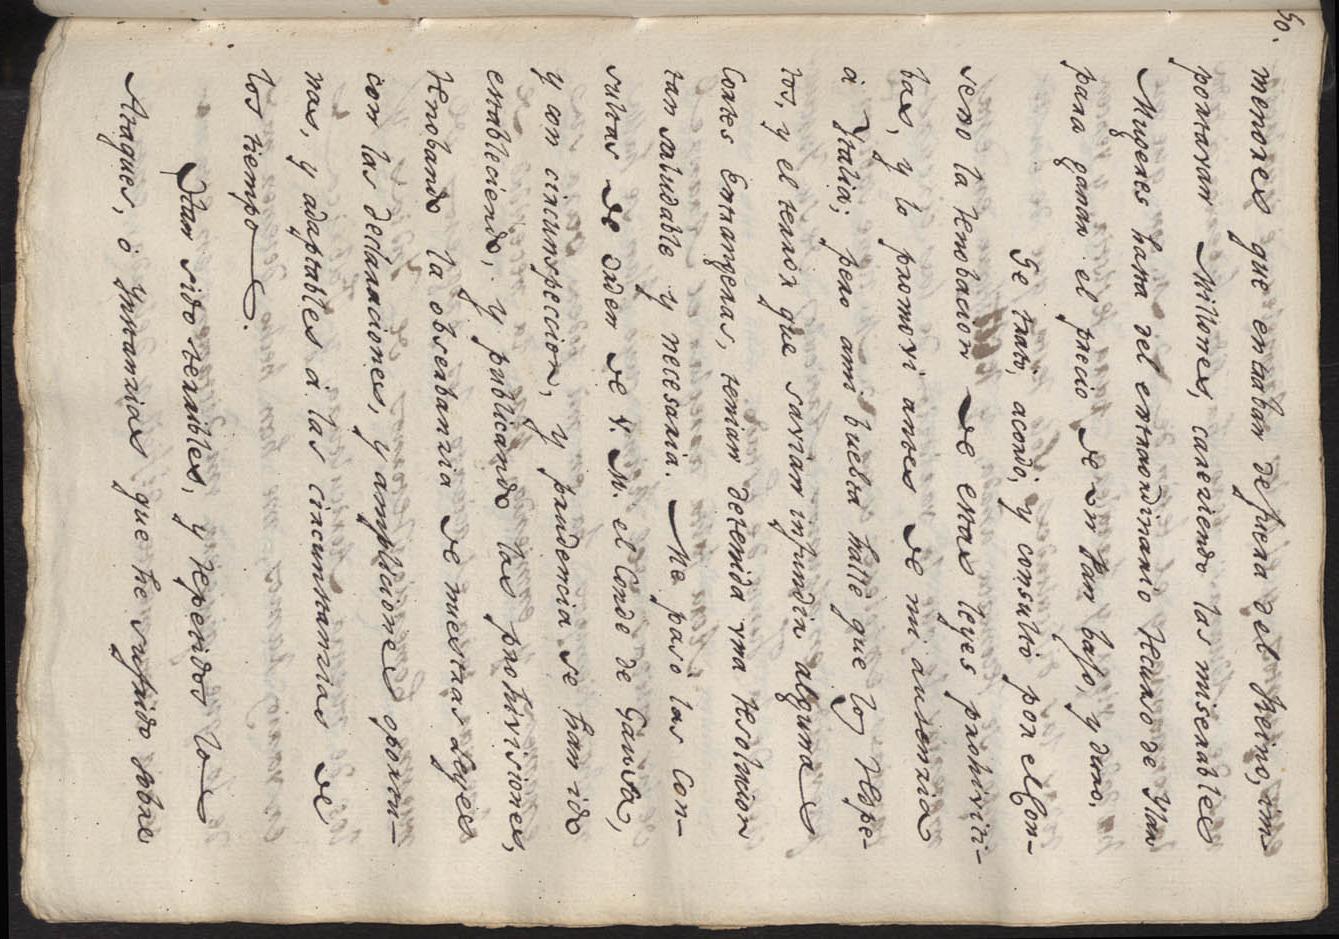 50.
menores que entraban de fuera del Reino, im
portavan Millones, careciendo las miserables
Mugeres hasta del extraordinario recurso de Ylar
para ganar el precio de un Pan bajo, y duro.
Se trató, acordó, y consultó por el Con-
sejo la renobacion de estas leyes prohiviti-
bas, y lo promovi antes de mi ausencia
á Ytalia; pero ami buelta hallé que los Respe-
tos, y el temor que savian infundir algunas
Cortes Extrangeras, tenian detenida una resolucion
tan saludable y necesaria. Me paso las Con-
sultas de orden de V. M. el Conde de Gausa,
y con circunspeccion, y prudencia se han ido
extableciendo, y publicando las prohiviciones,
renobando la obserbancia de nuestras Leyes
con las declaraciones, y ampliciones oportu-
nas, y adaptables á las circunstancias de
los tiempos.
Han sido terribles, y repetidos los
Ataques, ó que he sufrido sobre